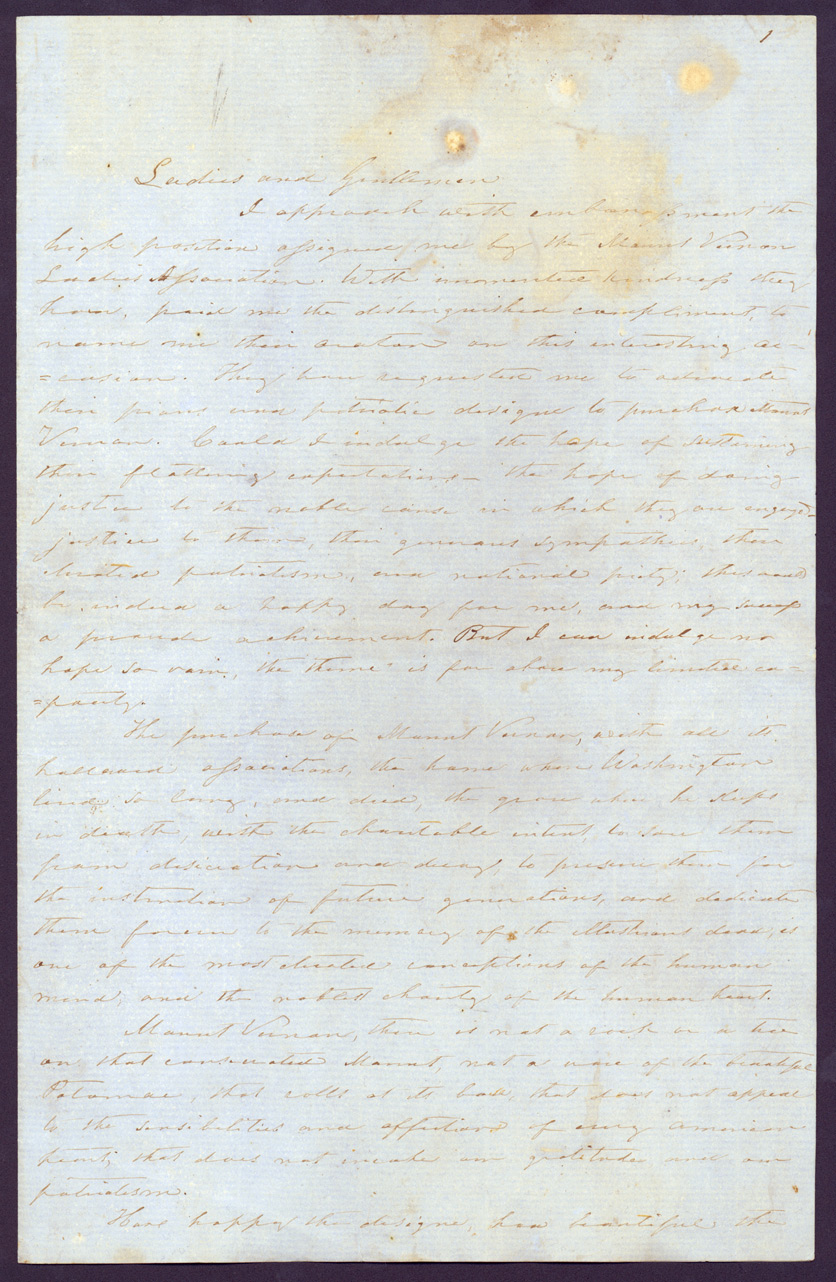 1
Ladies and Gentlemen
I approach with embarrassment the
high position assigned me by the Mount Vernon
Ladies Association. With unmerited kindness they
have, paid me the distinguished compliment, to
name me their orator on this interesting oc=
=casion. They have requested me to advocate
their pious and patriotic designs to purchase Mount
Vernon. Could I indulge the hope of sustaining
their flattering expectations – the hope of doing
justice to the noble cause in which they are engaged –
justice to them –, their generous sympathies, their
elevated patriotism, and national piety; this would
be, indeed a happy day for me, and my success
a proud achievement. But I can indulge no
hope so vain, the theme is far above my limited ca=
=pacity.
The purchase of Mount Vernon, with all its
hallowed associations, the home where Washington
lived so long, and died, the grave where he sleeps
in death, with the charitable intent, to save them
from desecration and decay, to preserve them for
the instruction of future generations, and dedicate
them forever to the memory of the illustrious dead, is
one of the most elevated conceptions of the human
mind, and the noblest charity of the human heart.
Mount Vernon, there is not a rock or a tree
on that consecrated Mount, not a wave of the beautiful
Potomac, that rolls at its base, that does not appeal
to the sensibilities and affections of every American
heart; that does not invoke our gratitude and our
patriotism.
How happy the designe, how beautiful the